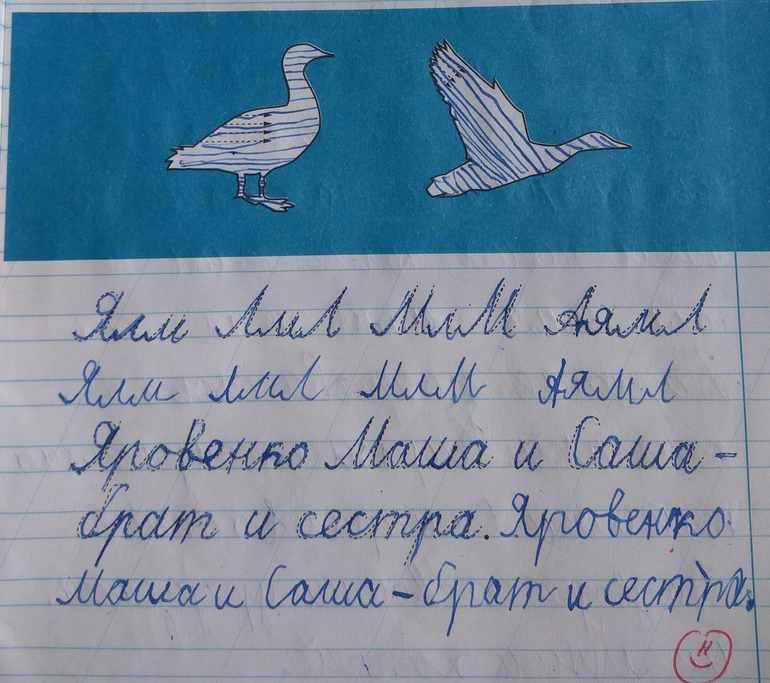 Ялм ЛмЛ МлМ Аямл
Ялм ЛмЛ МлМ Аямл
Яровенко Маша и Саша -
брат и сестра. Яровенко
Маша и Саша - брат и сестра.